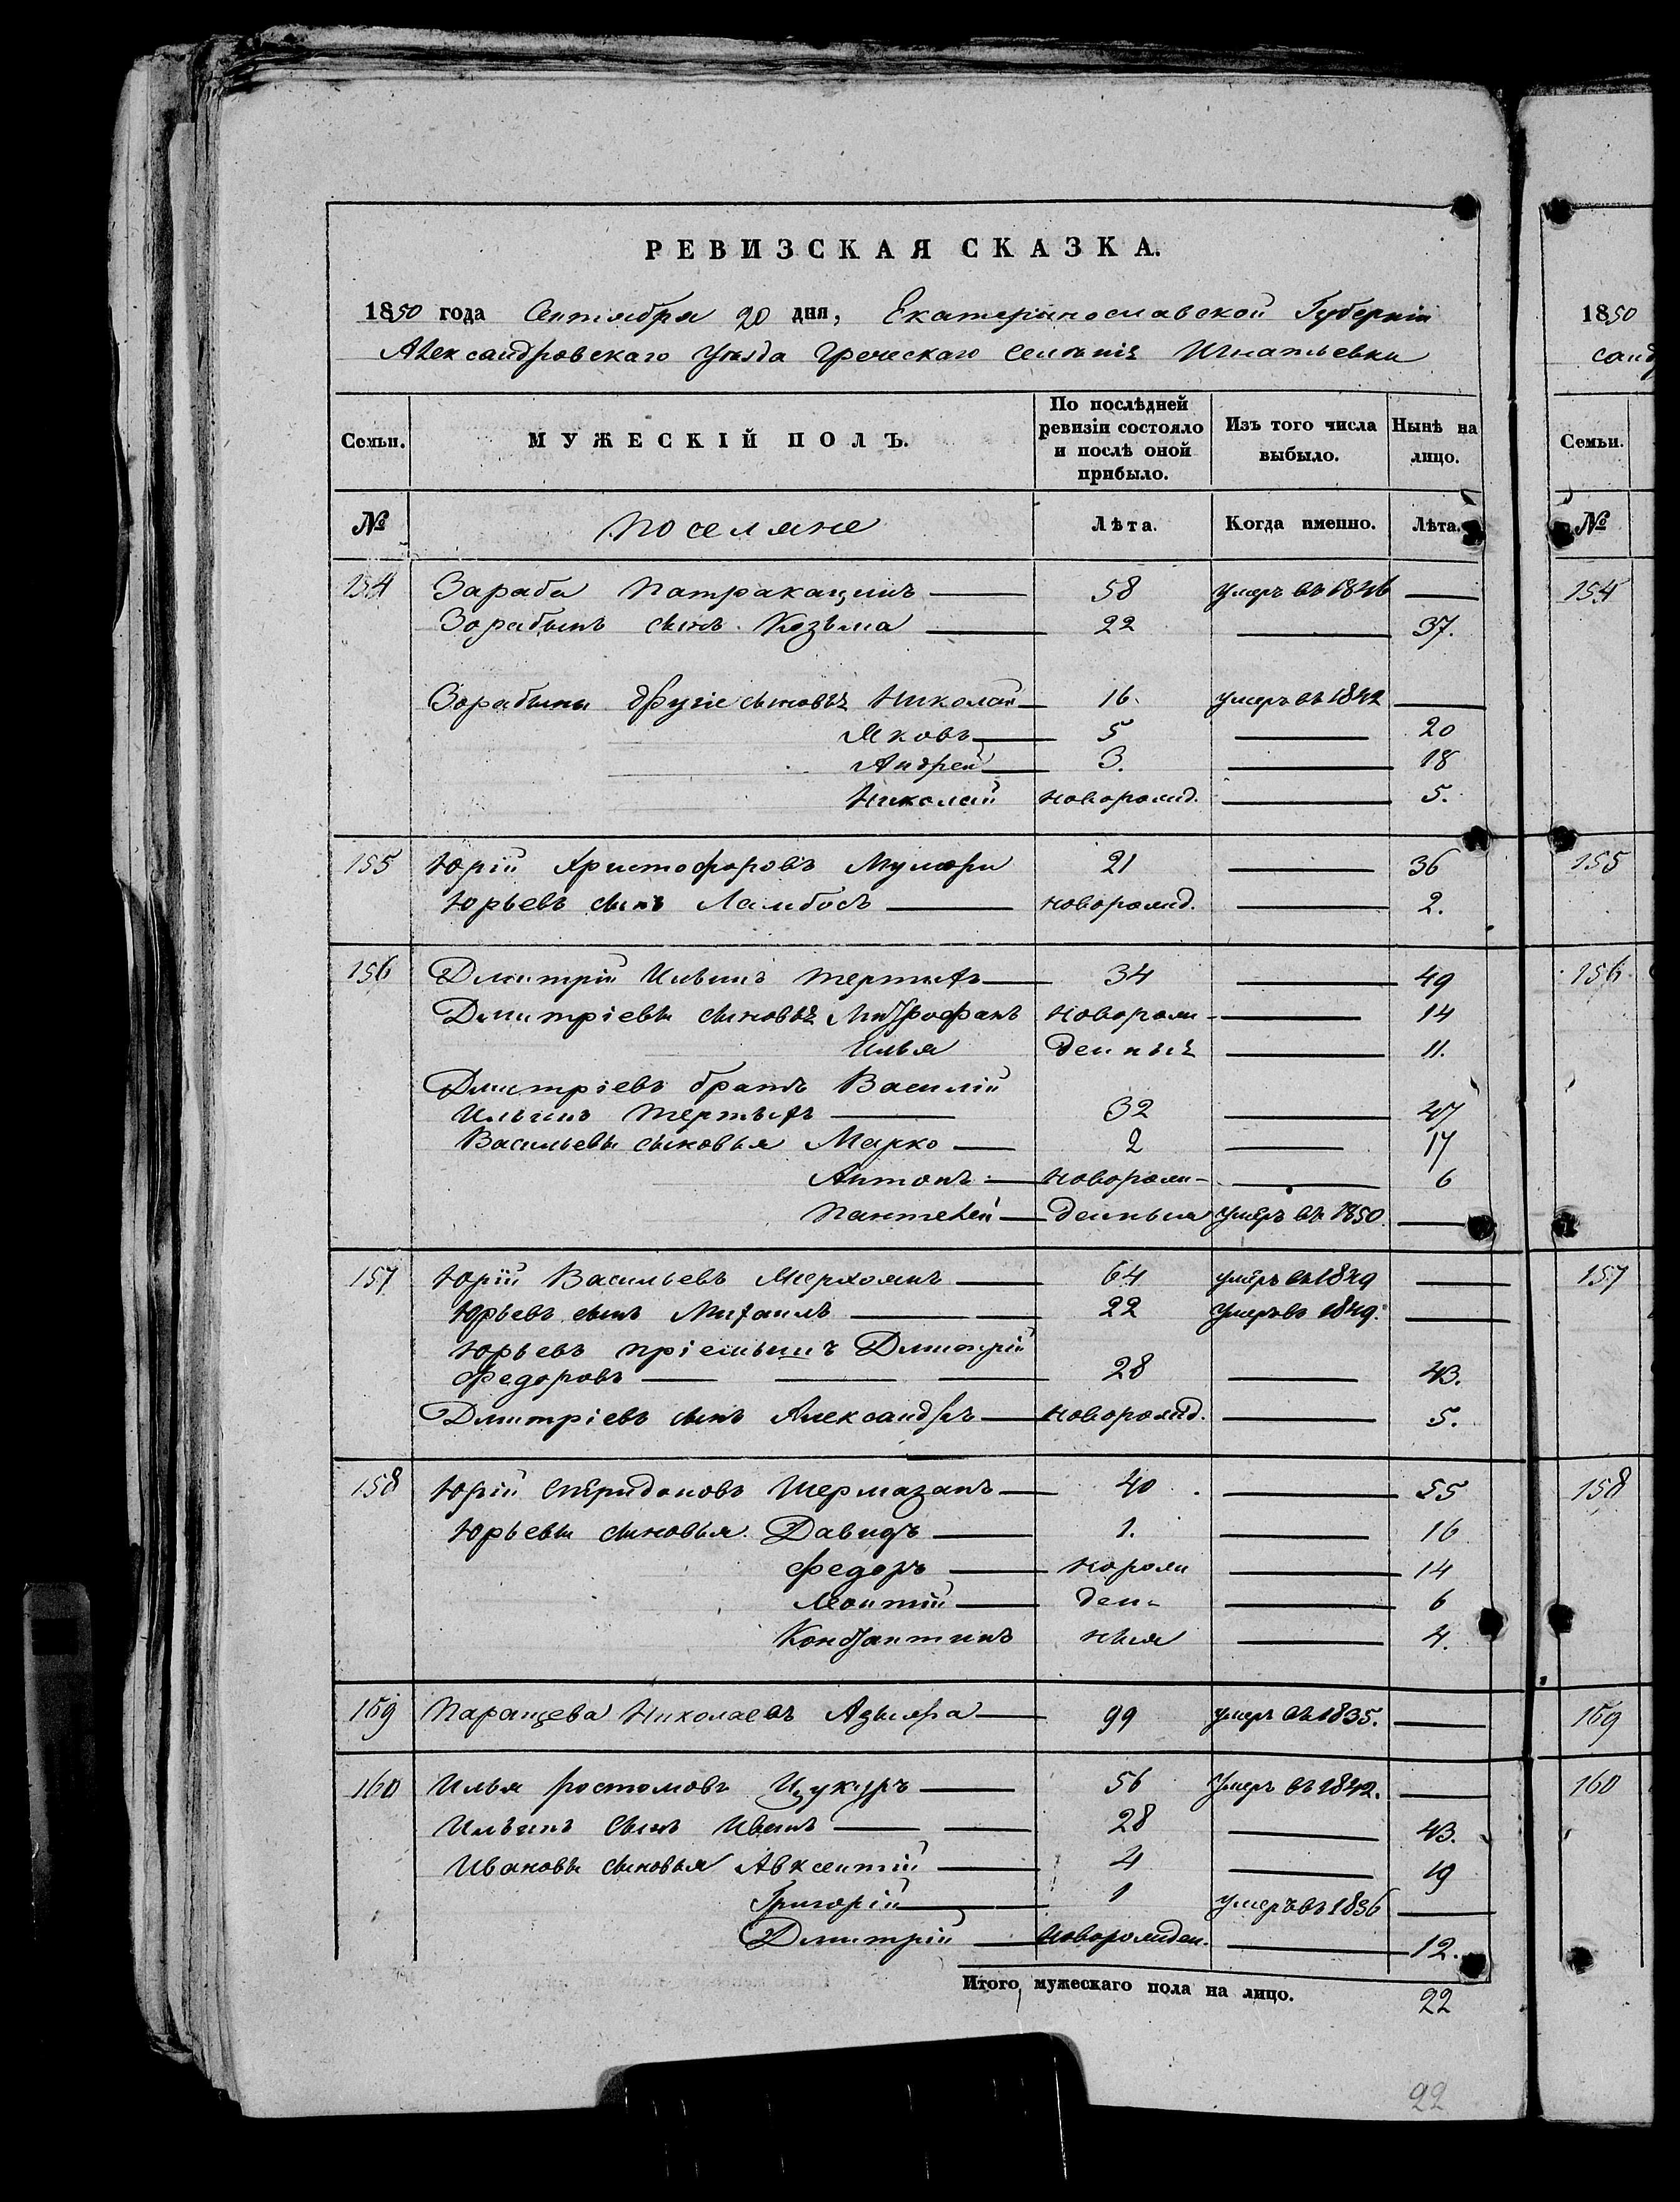 РЕВИЗСКАЯ СКАЗКА.
1850 года Сентября 20 дня, Екатеринославской Губерніи
Александровскаго уѣзда Греческаго селенія Игнатьевки
Семьи. МУЖЕСКІЙ ПОЛЪ. По послѣдней ревизіи состояло и послѣ оной прибыло. Изъ того числа выбыло. Нынѣ на лицо.
№ Поселяне Лѣта. Когда именно. Лѣта.
154 Зараба Патракацинъ 58 умеръ въ 1846
Зорабынъ сынъ Козьма 22 37.
Зорабыны другіе сыновья Николай 16. умеръ въ 1842
Яковъ 5 20
Андрей 3. 18
Николай новорожд. 5.
155 Юрій Христофоровъ 21 36
Юрьевъ сынъ Ламбосъ новорожд. 2.
156 Дмитрій Ильинъ Тертыхъ 34 49
Дмитріевы сыновья Митрофанъ новорож- 14
Илья денныя 11.
Дмитріевъ братъ Василій
Ильинъ Тертыхъ 32 47
Васильевы сыновья Марко 2 17
Антонъ новорож- 6
Пантелей денныя умеръ въ 1850.
157 Юрій Васильевъ 64 умеръ въ 1849
Юрьевъ сынъ Михаилъ 22 умеръ въ 1849.
Юрьевъ пріемышъ Дмитрій
Федоровъ 28 43.
Дмитріевъ сынъ Александръ новорожд. 5.
158 Юрій Спиридоновъ Шермазанъ 40 55
Юрьевы сыновья Давидъ 1. 16
Федоръ норож 14
Леонтій ден- 6
Константинъ ныя 4.
159 Паранцева Николаевъ 99 умеръ въ 1835.
160 Илья Ростомовъ Цукуръ 56 умеръ въ 1842.
Ильинъ сынъ Иванъ 28 43.
Ивановы сыновья Авксентій 4 19
Григорій 1 умеръ въ 1836
Дмитрій новорожден. 12.
Итого мужескаго пола на лицо. 22
22
1850
санд
Семьи.
№
154
155
156
157
158
159
160